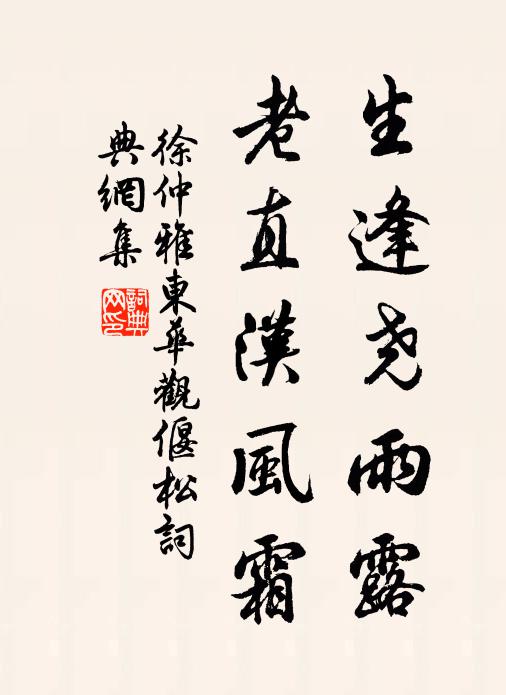 生逢尧雨露
老直漢風霜
徐仲雅東華觀偃松詞
典網集
詞典
网印